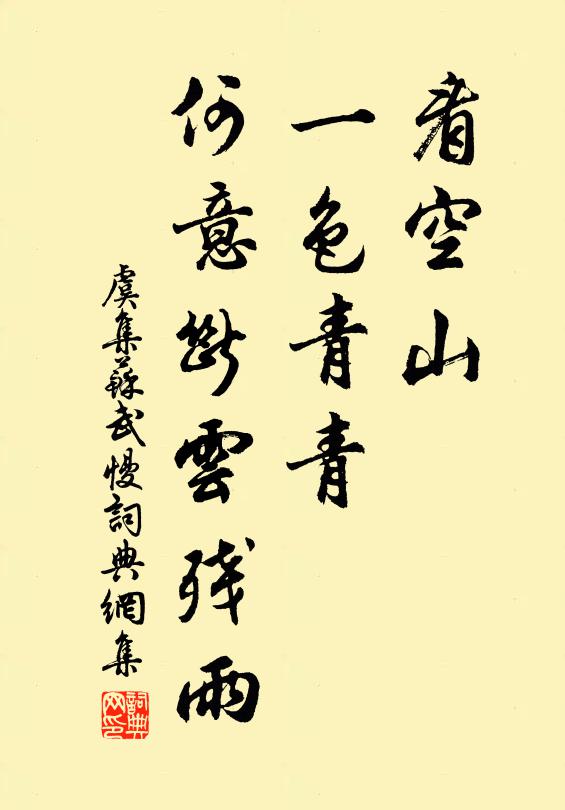 看空山
一色青青
何意断雲残雨
虞集蘇武慢詞典網集
詞典
网印